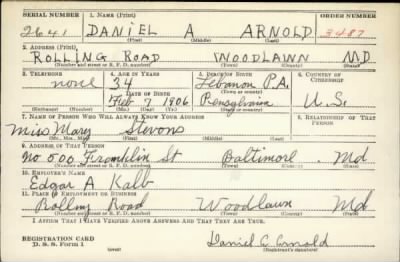 SERIAL NUMBER 1. NAME (Print) ORDER NUMBER
2641 DANIEL A ARNOLD 3487
(First) (Middle) (Last)
2. ADDRESS (Print)
ROLLING ROAD WOODLAWN MD
(Number and street or R. F. D. number) (Town) (County) (State)
3. TELEPHONE 4. AGE IN YEARS 5. PLACE OF BIRTH 6. COUNTRY OF CITIZENSHIP
none 34 Lebanon P.A.
DATE OF BIRTH (Town or county)
Feb 7 1906 Pensylvain U.S.
(Exchange) (Number) (Mo.) (Day) (Yr.) (State or country)
7. NAME OF PERSON WHO WILL ALWAYS KNOW YOUR ADDRESS 8. RELATIONSHIP OF THAT PERSON
Miss Mary Stevons
(Mr., Mrs., Miss) (First) (Middle) (Last)
9. ADDRESS OF THAT PERSON
No 500 Franklin St Baltimore Md
(Number and street or R. F. D. number) (Town) (County) (State)
10. EMPLOYER'S NAME
Edgar A Kalb
11. PLACE OF EMPLOYMENT OR BUSINESS
Rolling Road Woodlawn Md
(Number and street or R. F. D. number) (Town) (County) (State)
I AFFIRM THAT I HAVE VERIFIED ABOVE ANSWERS AND THAT THEY ARE TRUE.
REGISTRATION CARD
D. S. S. Form 1 (over) Daniel A. Arnold